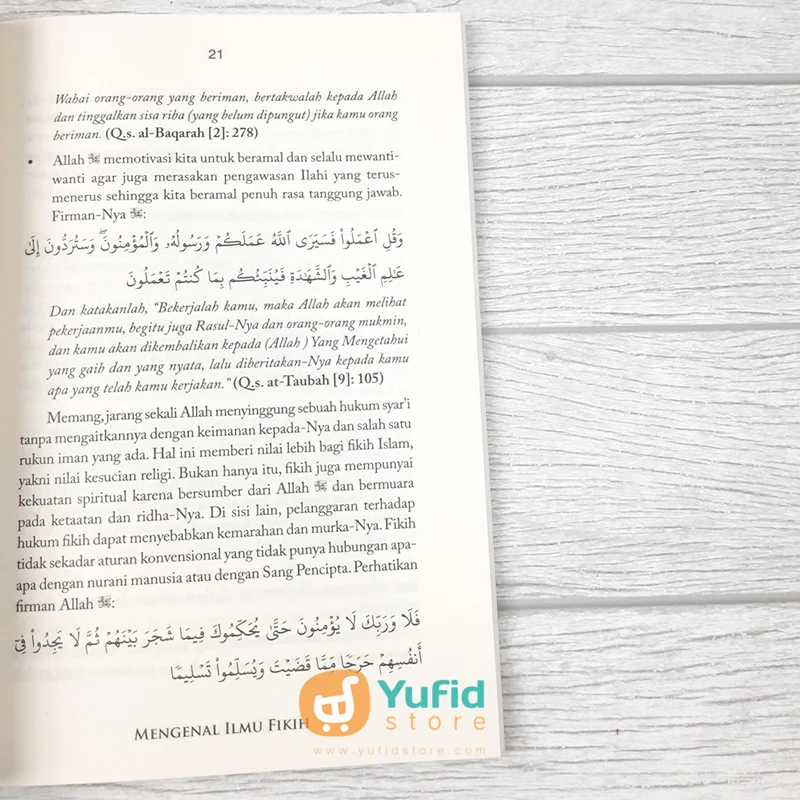 21
Wahai orang-orang yang beriman, bertakwalah kepada Allah
dan tinggalkan sisa riba (yang belum dipungut) jika kamu orang
beriman. (Q.s. al-Baqarah [2]: 278)
• Allah ﷻ memotivasi kita untuk beramal dan selalu mewanti-
wanti agar juga merasakan pengawasan Ilahi yang terus-
menerus sehingga kita beramal penuh rasa tanggung jawab.
Firman-Nya ﷻ:
وَقُلِ ٱعْمَلُوا۟ فَسَيَرَى ٱللَّهُ عَمَلَكُمْ وَرَسُولُهُۥ وَٱلْمُؤْمِنُونَ ۖ وَسَتُرَدُّونَ إِلَىٰ
عَـٰلِمِ ٱلْغَيْبِ وَٱلشَّهَـٰدَةِ فَيُنَبِّئُكُم بِمَا كُنتُمْ تَعْمَلُونَ
Dan katakanlah, “Bekerjalah kamu, maka Allah akan melihat
pekerjaanmu, begitu juga Rasul-Nya dan orang-orang mukmin,
dan kamu akan dikembalikan kepada (Allah ) Yang Mengetahui
yang gaib dan yang nyata, lalu diberitakan-Nya kepada kamu
apa yang telah kamu kerjakan.” (Q.s. at-Taubah [9]: 105)
Memang, jarang sekali Allah menyinggung sebuah hukum syar’i
tanpa mengaitkannya dengan keimanan kepada-Nya dan salah satu
rukun iman yang ada. Hal ini memberi nilai lebih bagi fikih Islam,
yakni nilai kesucian religi. Bukan hanya itu, fikih juga mempunyai
kekuatan spiritual karena bersumber dari Allah ﷻ dan bermuara
pada ketaatan dan ridha-Nya. Di sisi lain, pelanggaran terhadap
hukum fikih dapat menyebabkan kemarahan dan murka-Nya. Fikih
tidak sekadar aturan konvensional yang tidak punya hubungan apa-
apa dengan nurani manusia atau dengan Sang Pencipta. Perhatikan
firman Allah ﷻ:
فَلَا وَرَبِّكَ لَا يُؤْمِنُونَ حَتَّىٰ يُحَكِّمُوكَ فِيمَا شَجَرَ بَيْنَهُمْ ثُمَّ لَا يَجِدُوا۟ فِىٓ
أَنفُسِهِمْ حَرَجًا مِّمَّا قَضَيْتَ وَيُسَلِّمُوا۟ تَسْلِيمًا
MENGENAL ILMU FIKIH
Yufid
store
www.yufidstore.com